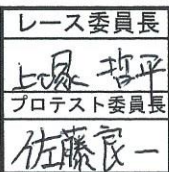 レース委員長
上塚 哲平
プロテスト委員長
佐藤良一